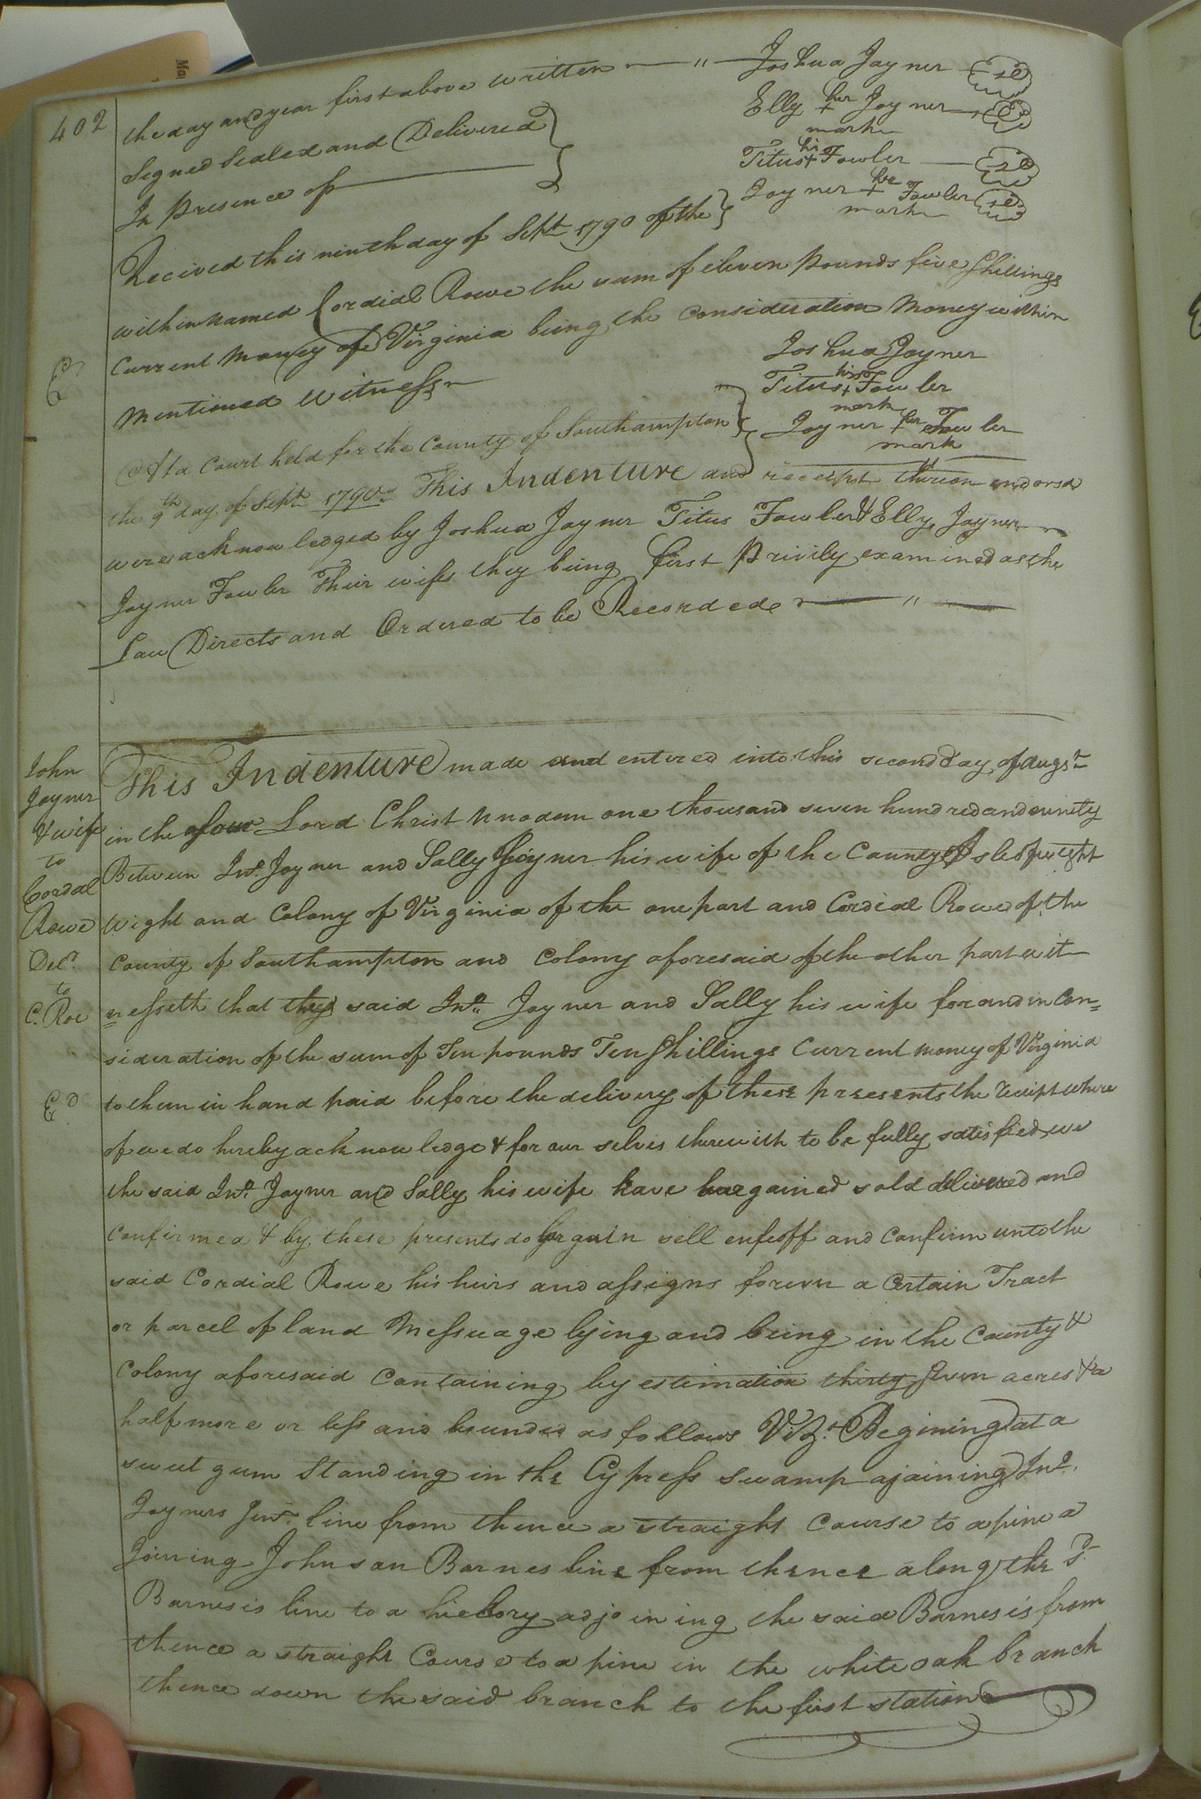 402
the day and year first above written — " — Joshua Jayner
Elly her + mark Jayner
Signed Sealed and Delivered
Titus his + Fowler
In Presence of
Jayner her + mark Fowler
Recived this ninth day of Sept 1790 of the
within named Cordial Rowe the sum of eleven Pounds five Shillings
Current Money of Virginia being the Consideration Money within
Mentioned Witness
Joshua Jayner
Titus his + mark Fowler
Jayner her + mark Fowler
At a Court held for the County of Southampton
the 9th day of Sept 1790 This Indenture and receipt thereon endorsd
were acknowledged by Joshua Jayner Titus Fowler & Elly Jayner
Jayner Fowler Their wifes they being first Privily examined as the
Law Directs and Ordered to be Recorded
John
Jayner
& wife
to
Cordal
Rowe
Del.
to
C. Roe
Ed
This Indenture made and entered into this second day of Augst
in the of our Lord Christ Annodom one thousand seven hundred and ninety
Between Jno. Jayner and Sally Jayner his wife of the County of Isle of weight
Wight and Colony of Virginia of the one part and Cordial Rowe of the
County of Southampton and Colony aforesaid of the other part wit
nesseth that they said Jno. Jayner and Sally his wife for and in Con=
sideration of the sum of Ten pounds Ten Shillings Current money of Virginia
to them in hand paid before the delivery of these presents the receipt where
of we do hereby acknowledge & for our selves therewith to be fully satisfied we
the said Jno. Jayner and Sally his wife have bargained sold delivered and
Confirmed & by these presents do bargain sell enfeoff and Confirm unto the
said Cordial Rowe his heirs and assigns forever a Certain Tract
or parcel of land Messuage lying and being in the County &
Colony aforesaid Containing by estimation thirty seven acres & a
half more or less and bounded as follows Vizt. Begining at a
sweet gum Standing in the Cypress Swamp ajaining Jno.
Jayners Junr. line from thence a straight Course to a pine a
Joining Johnson Barnes line from thence along the sd.
Barnesis line to a hickory adjoining the said Barnesis from
thence a straight Course to a pine in the white oak branch
thence down the said branch to the first station